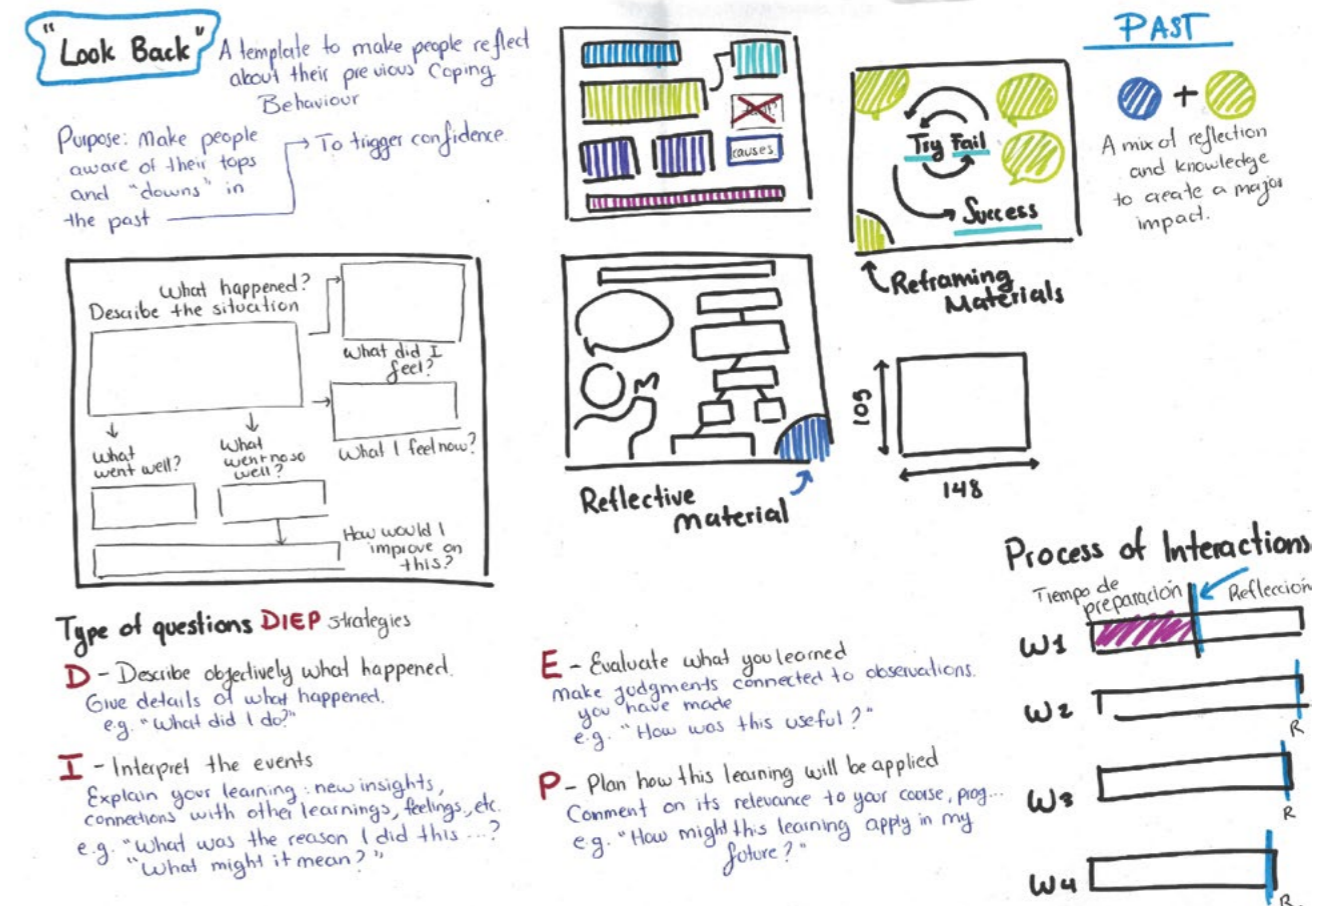 "Look Back"
A template to make people reflect
about their previous Coping
Behaviour
Purpose: Make people
aware of their tops
and "downs" in
the past
To trigger confidence.
What happened?
Describe the situation
What did I
feel?
What I feel now?
What
went well?
What
went no so
well?
How would I
improve on
this?
causes
Try Fail
Success
Reframing
Materials
Reflective
material
105
148
PAST
+
A mix of reflection
and knowledge
to create a major
impact.
Type of questions DIEP strategies
D - Describe objectively what happened.
Give details of what happened.
e.g. "What did I do?"
I - Interpret the events
Explain your learning: new insights,
connections with other learnings, feelings, etc.
e.g. "What was the reason I did this ...?
"What might it mean?"
E - Evaluate what you learned
make judgments connected to observations.
you have made
e.g. "How was this useful?"
P - Plan how this learning will be applied
Comment on its relevance to your course, prog...
e.g. "How might this learning apply in my
future?"
Process of Interactions
Tiempo de
preparación
Reflección
W1
W2
R
W3
R
W4
R